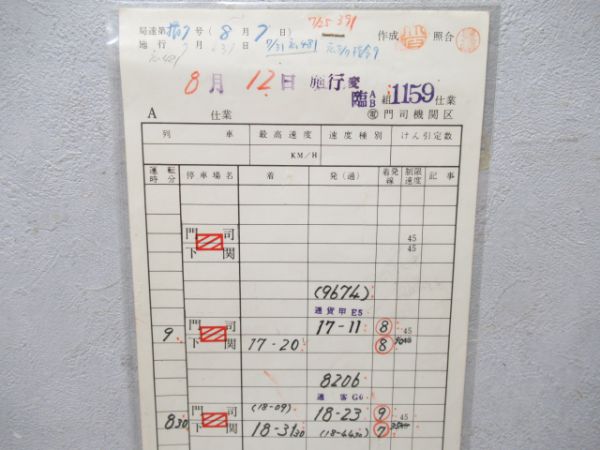 7/25 391
局達第 号 ( 8 月 7 日)
施行 7 月 31 日
7/31
作成 照合
8月 12日 施行 変
臨 A B 組 1159 仕業
A 仕業
電 門司機関区
列 車 最高速度 速度種別 けん引定数
KM/H
運転時分 停車場名 着 発(過) 着発線 制限速度 記事
門 司 45
下 関 45
(9674)
通貨甲 E5
9 門 司 17-11 8 45
下 関 17-20 8
8206
通客 G6
門 司 (18-09) 18-23 9 45
830 下 関 18-3130 (18-4430) 7